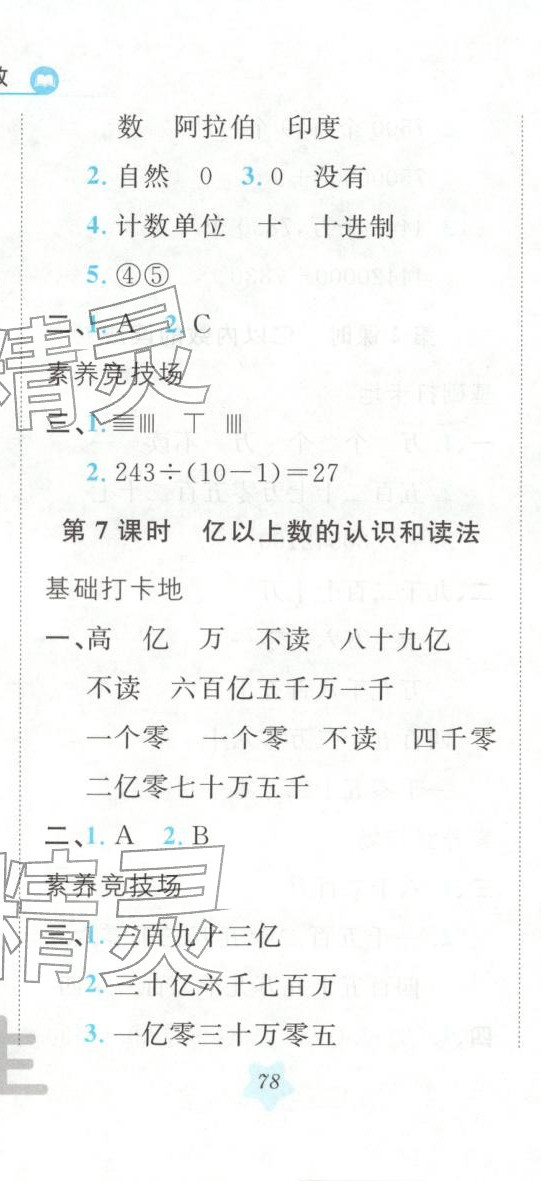 数 阿拉伯 印度
2. 自然 0 3. 0 没有
4. 计数单位 十 十进制
5. ④⑤
二、1. A 2. C
素养竞技场
三、1.
2. 243÷(10－1)＝27
第7课时 亿以上数的认识和读法
基础打卡地
一、高 亿 万 不读 八十九亿
不读 六百亿五千万一千
一个零 一个零 不读 四千零
二亿零七十万五千
二、1. A 2. B
素养竞技场
三、1. 三百九十三亿
2. 三十亿六千七百万
3. 一亿零三十万零五
78
精灵
精灵